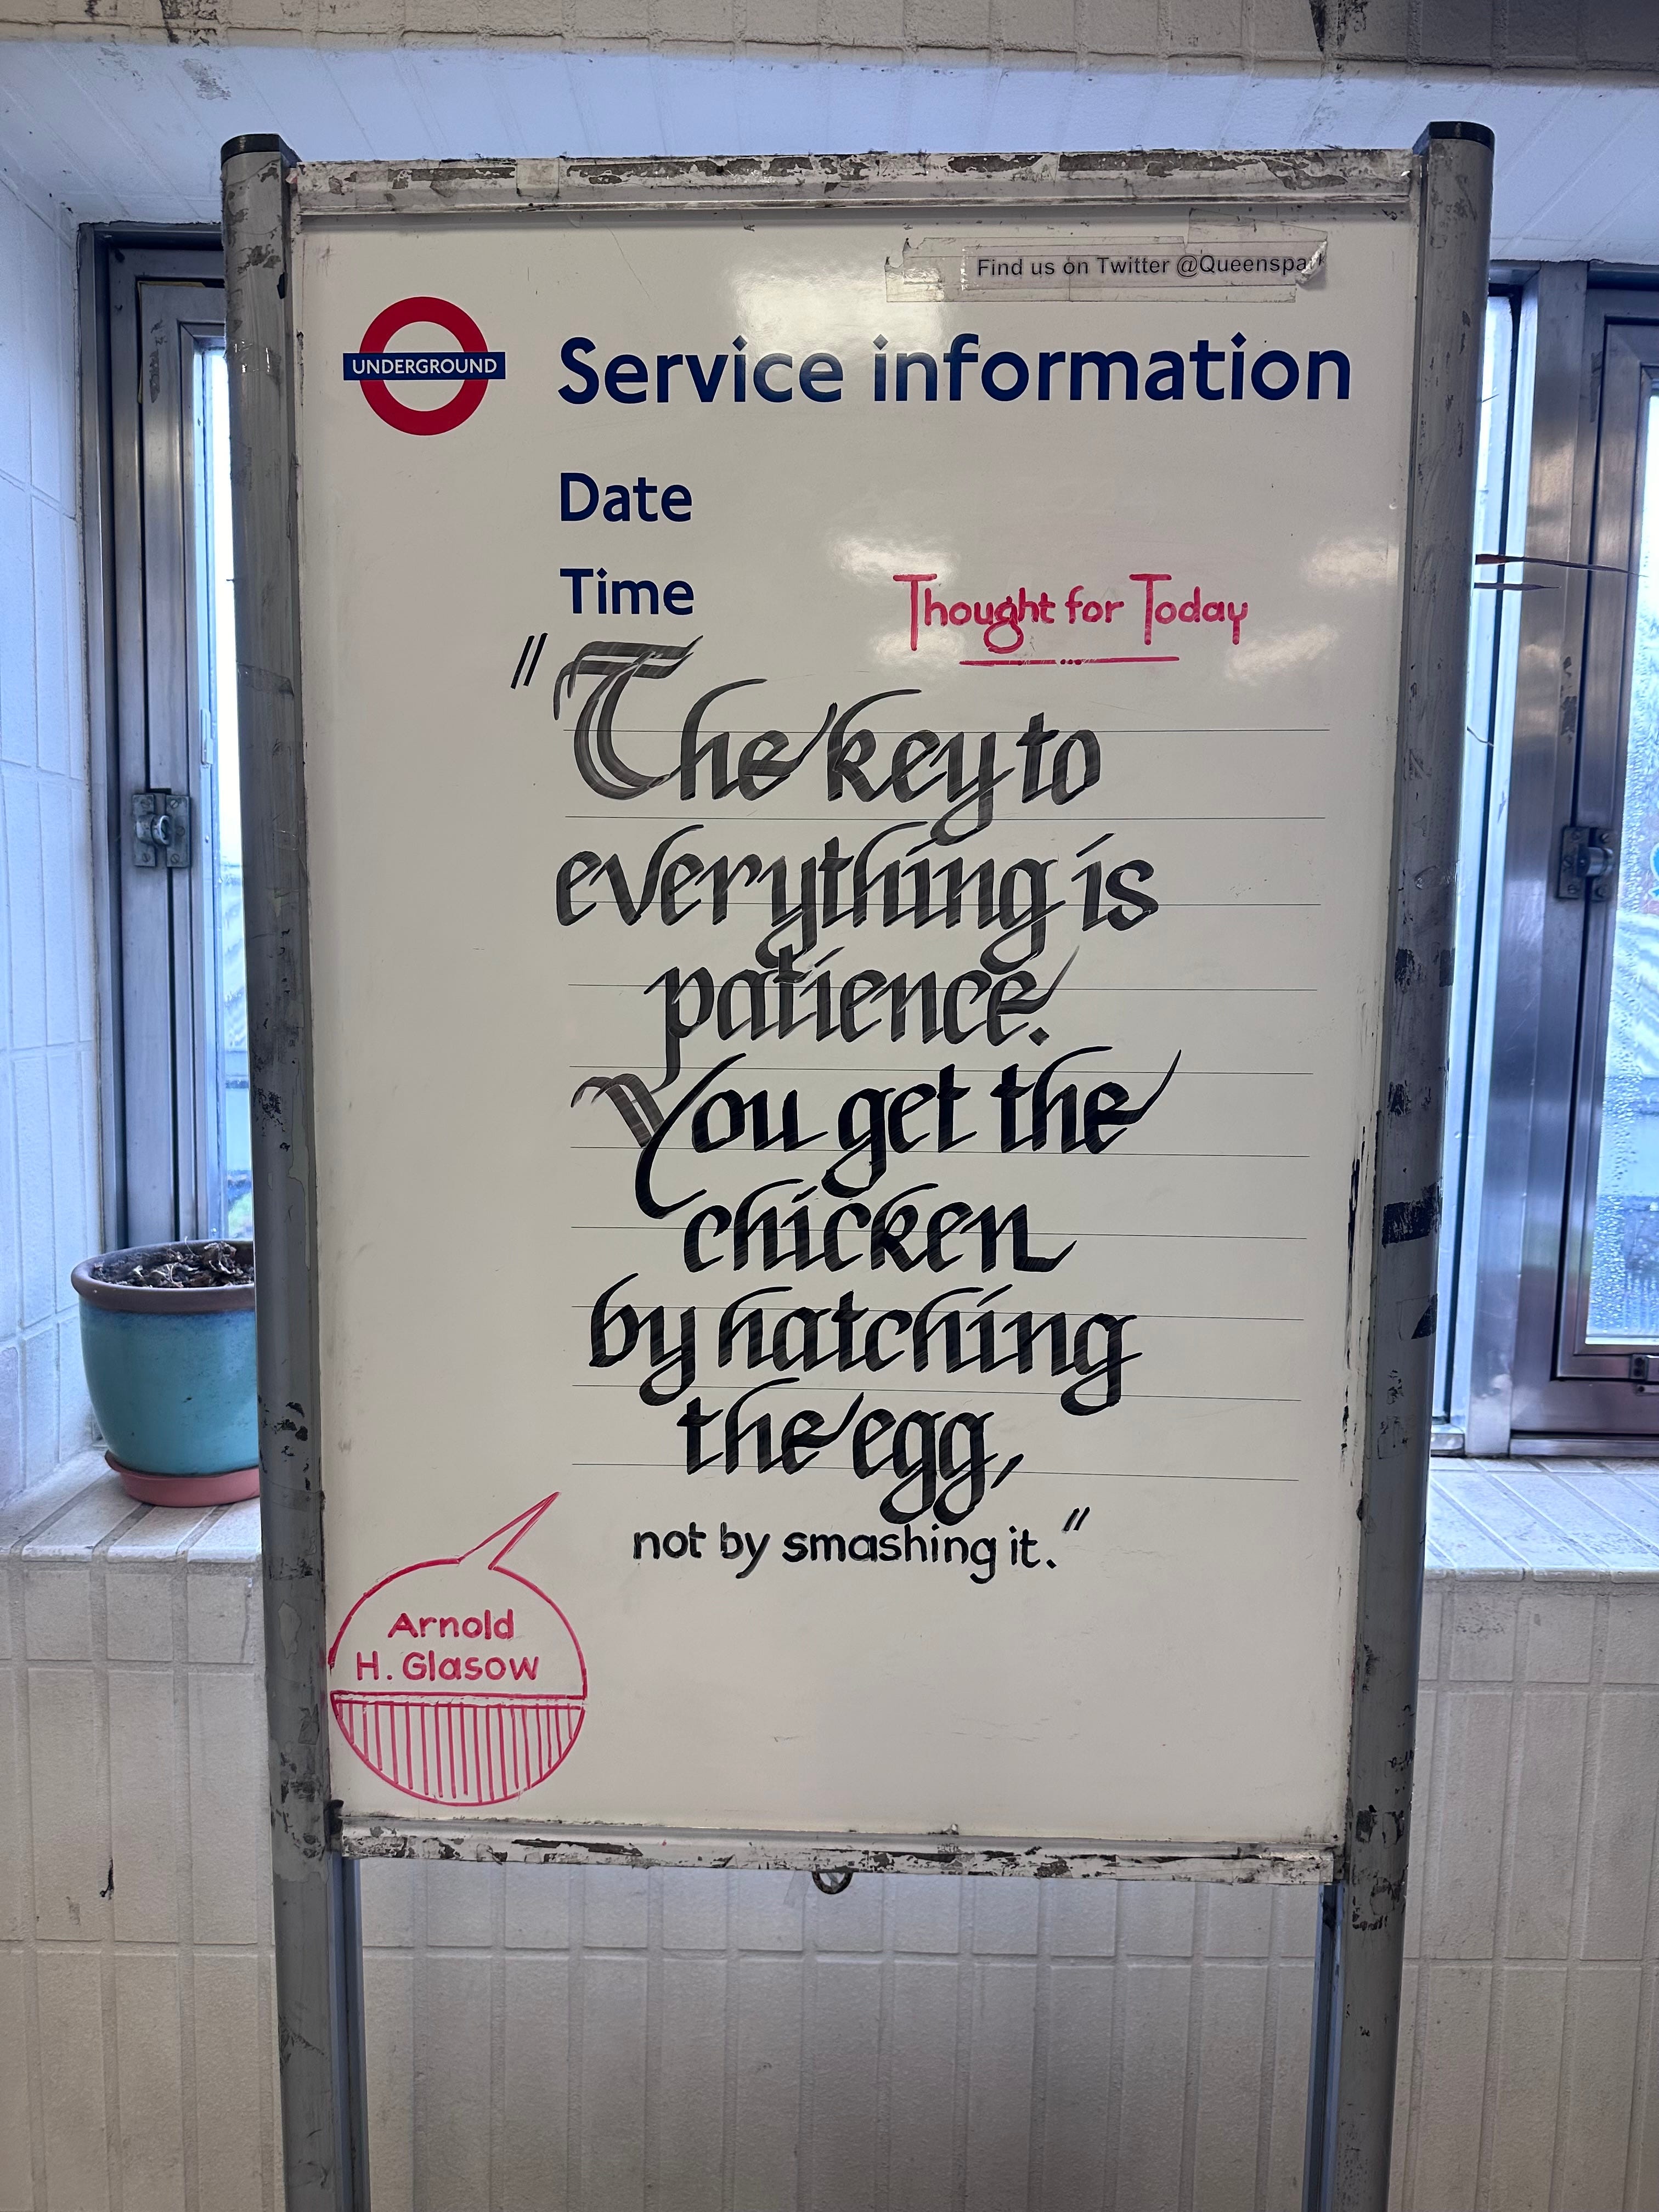 Find us on Twitter @Queenspark
UNDERGROUND
Service information
Date
Time
Thought for Today
"The key to
everything is
patience.
You get the
chicken
by hatching
the egg,
not by smashing it."
Arnold
H. Glasow